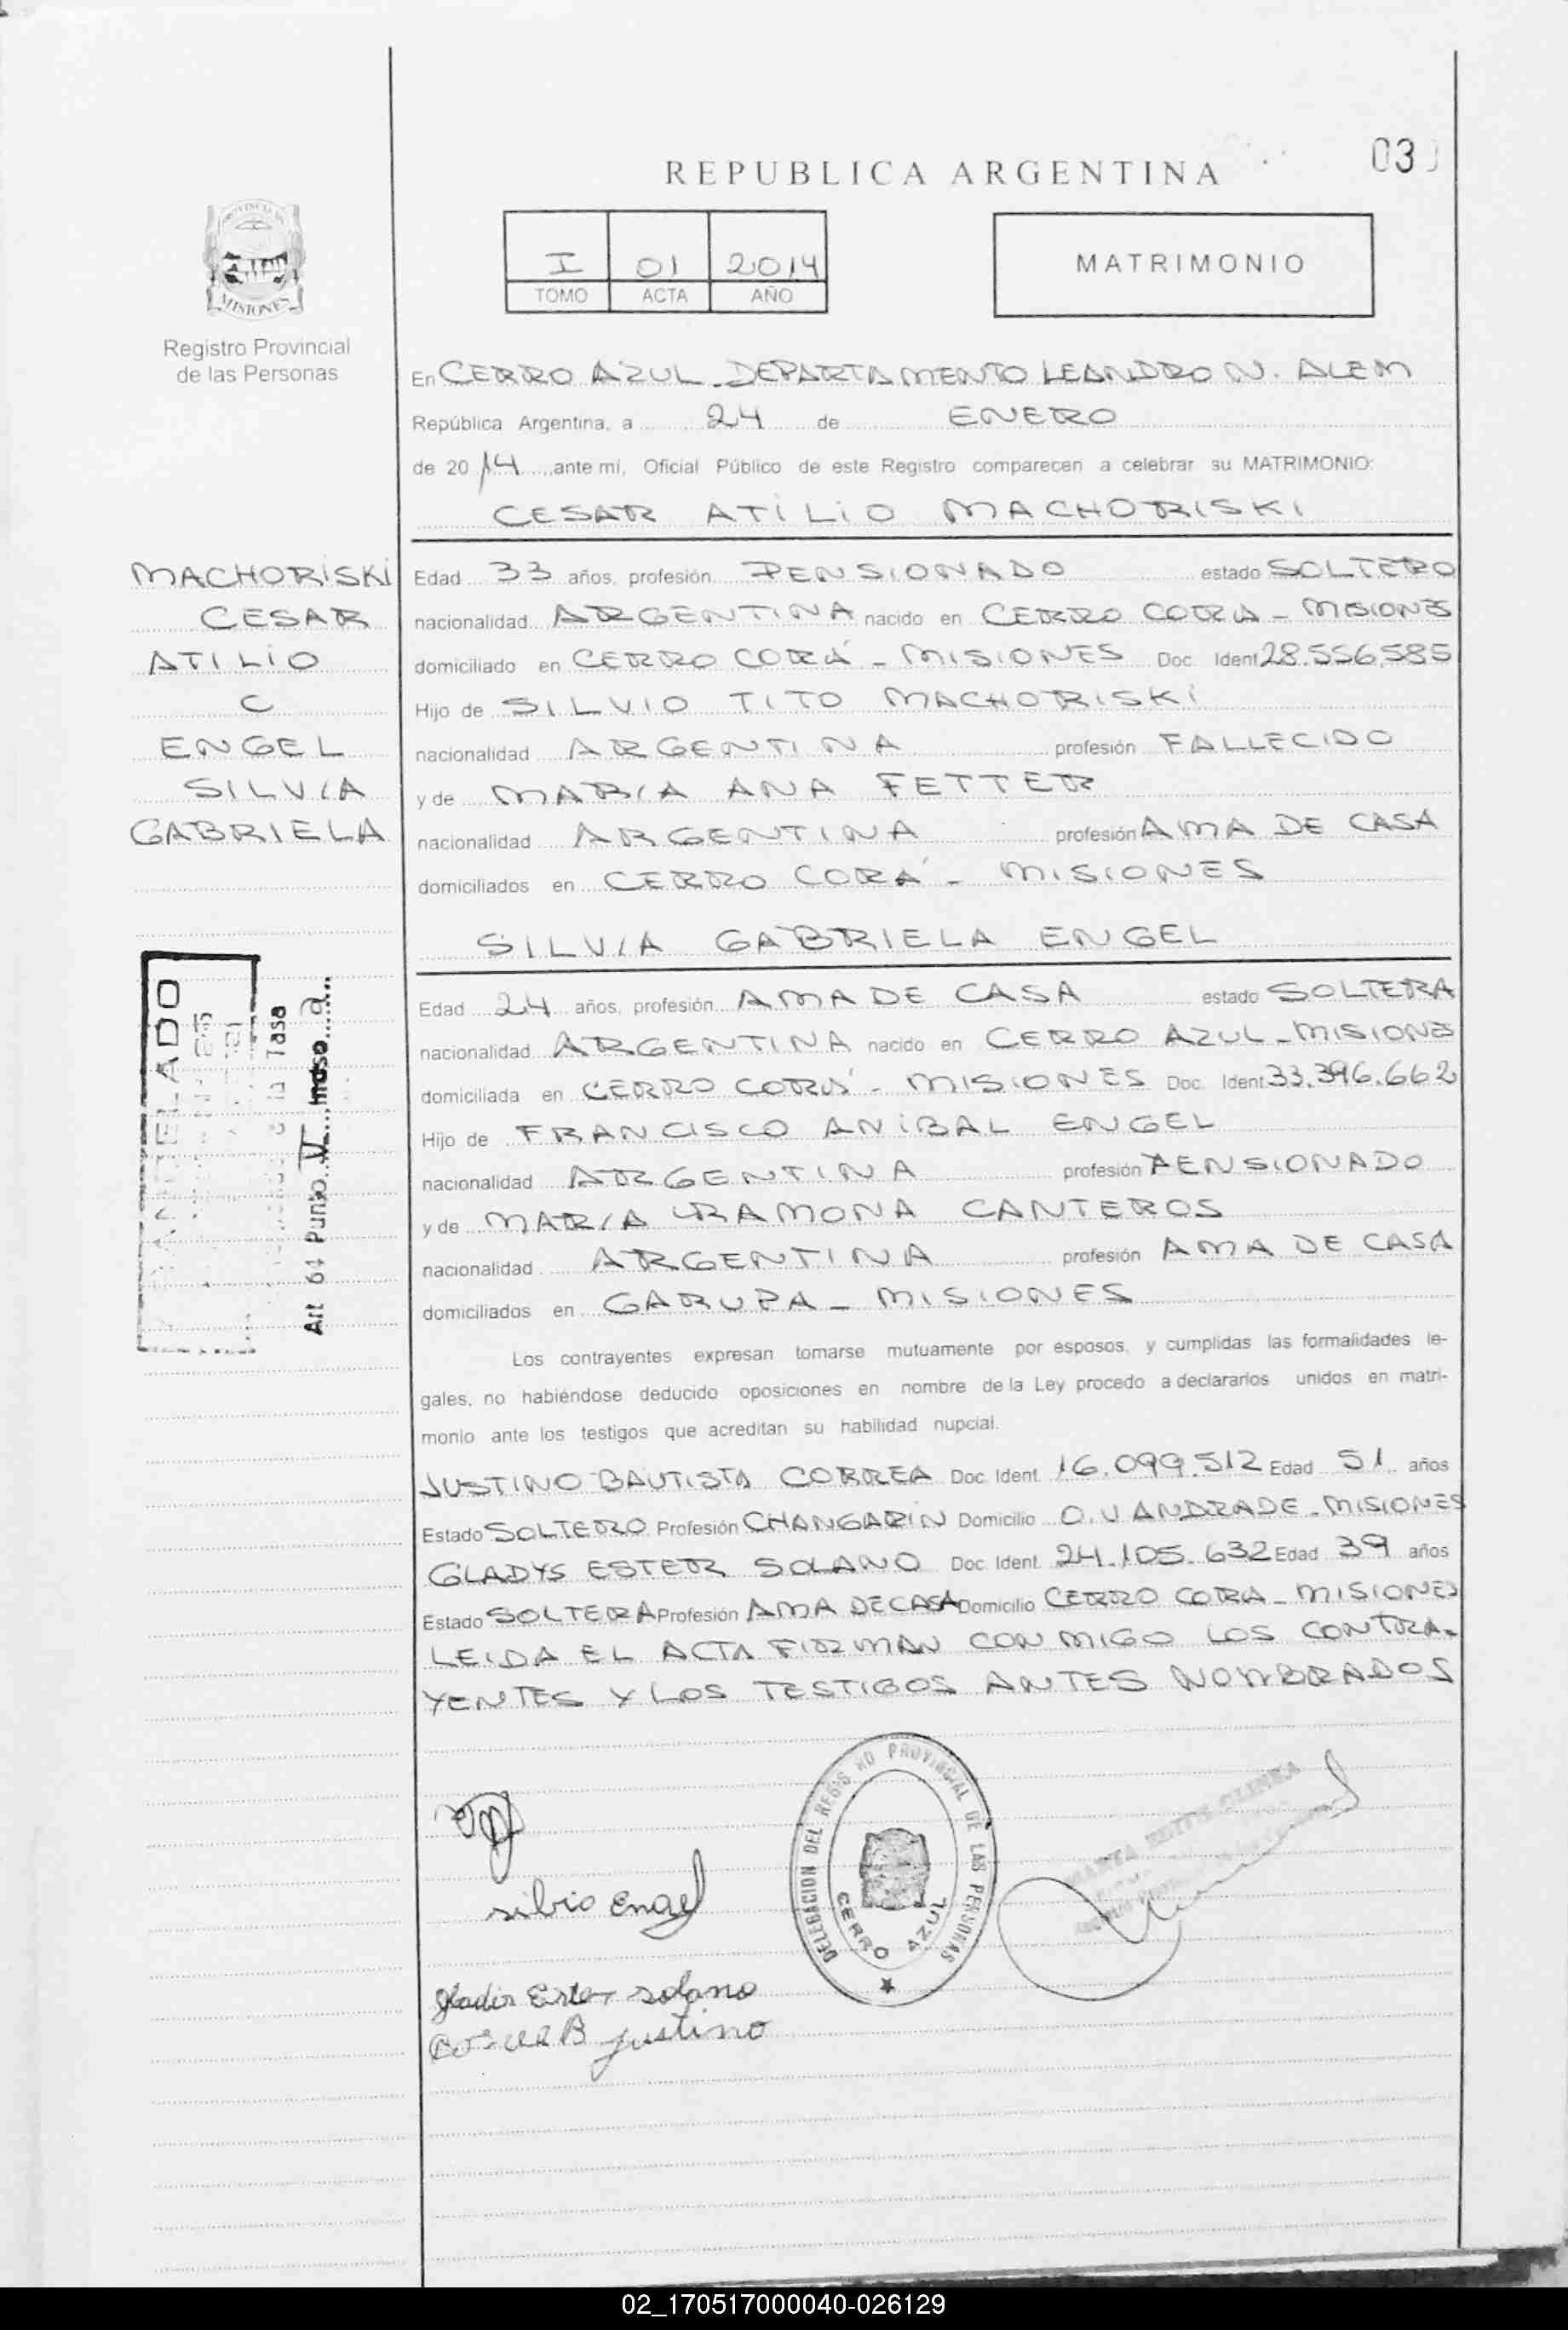 03
REPUBLICA ARGENTINA
PROVINCIA DE
MISIONES
Registro Provincial
de las Personas
I 01 2014
TOMO ACTA AÑO
MATRIMONIO
En CERRO AZUL - DEPARTAMENTO LEANDRO N. ALEM
República Argentina, a 24 de ENERO
de 2014 ante mi, Oficial Público de este Registro comparecen a celebrar su MATRIMONIO:
CESAR ATILIO MACHORISKI
MACHORISKI
CESAR
ATILIO
C
ENGEL
SILVIA
GABRIELA
Edad 33 años, profesión PENSIONADO estado SOLTERO
nacionalidad ARGENTINA nacido en CERRO CORA - MISIONES
domiciliado en CERRO CORÁ - MISIONES Doc. Ident 28.556.585
Hijo de SILVIO TITO MACHORISKI
nacionalidad ARGENTINA profesión FALLECIDO
y de MARIA ANA FETTER
nacionalidad ARGENTINA profesión AMA DE CASA
domiciliados en CERRO CORÁ - MISIONES
SILVIA GABRIELA ENGEL
Edad 24 años, profesión AMA DE CASA estado SOLTERA
nacionalidad ARGENTINA nacido en CERRO AZUL - MISIONES
domiciliada en CERRO CORÁ - MISIONES Doc. Ident 33.396.662
Hijo de FRANCISCO ANIBAL ENGEL
nacionalidad ARGENTINA profesión PENSIONADO
y de MARIA RAMONA CANTEROS
nacionalidad ARGENTINA profesión AMA DE CASA
domiciliados en GARUPA - MISIONES
Tasa
Art 64 Punto V Inciso a
Los contrayentes expresan tomarse mutuamente por esposos, y cumplidas las formalidades le-
gales, no habiéndose deducido oposiciones en nombre de la Ley procedo a declararlos unidos en matri-
monio ante los testigos que acreditan su habilidad nupcial.
JUSTINO BAUTISTA CORREA Doc. Ident. 16.099.512 Edad 51 años
Estado SOLTERO Profesión CHANGARIN Domicilio O.V ANDRADE - MISIONES
GLADYS ESTER SOLANO Doc. Ident. 24.105.632 Edad 39 años
Estado SOLTERA Profesión AMA DE CASA Domicilio CERRO CORA - MISIONES
LEIDA EL ACTA FIRMAN CONMIGO LOS CONTRA-
YENTES Y LOS TESTIGOS ANTES NOMBRADOS
DELEGACION DEL REGISTRO PROVINCIAL DE LAS PERSONAS
CERRO AZUL
silvio Engel
Gladis Ester solano
B justino
02_170517000040-026129